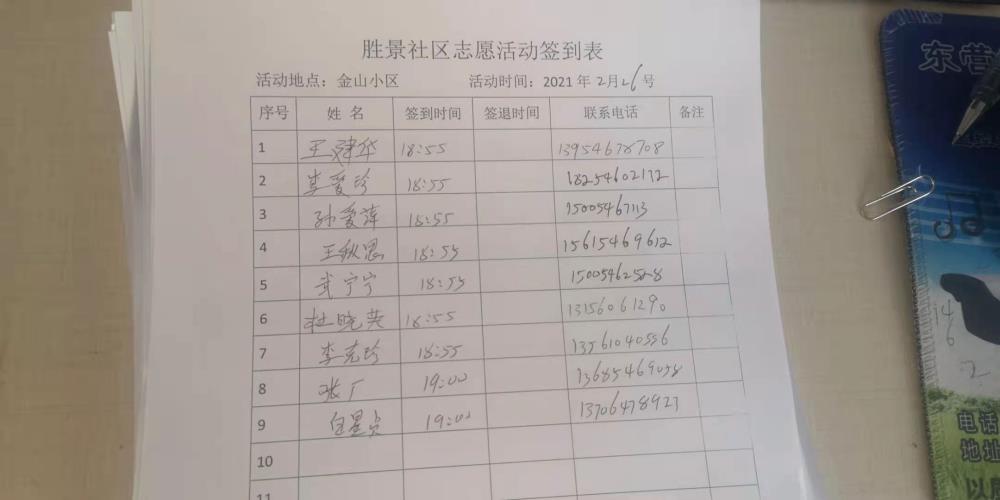 胜景社区志愿活动签到表
活动地点：金山小区 活动时间：2021年2月26号
序号 姓名 签到时间 签退时间 联系电话 备注
1 王建华 18:55 13954678708
2 李爱珍 18:55 18254602172
3 孙爱萍 18:55 15005467113
4 王秋思 18:55 15615469612
5 武宁宁 18:55 15005462528
6 杜晓英 18:55 13156061290
7 李克珍 18:55 13561040556
8 张广 19:00 13685469058
9 19:00 13706478927
10
11
东营
14
6
2
电话
地址